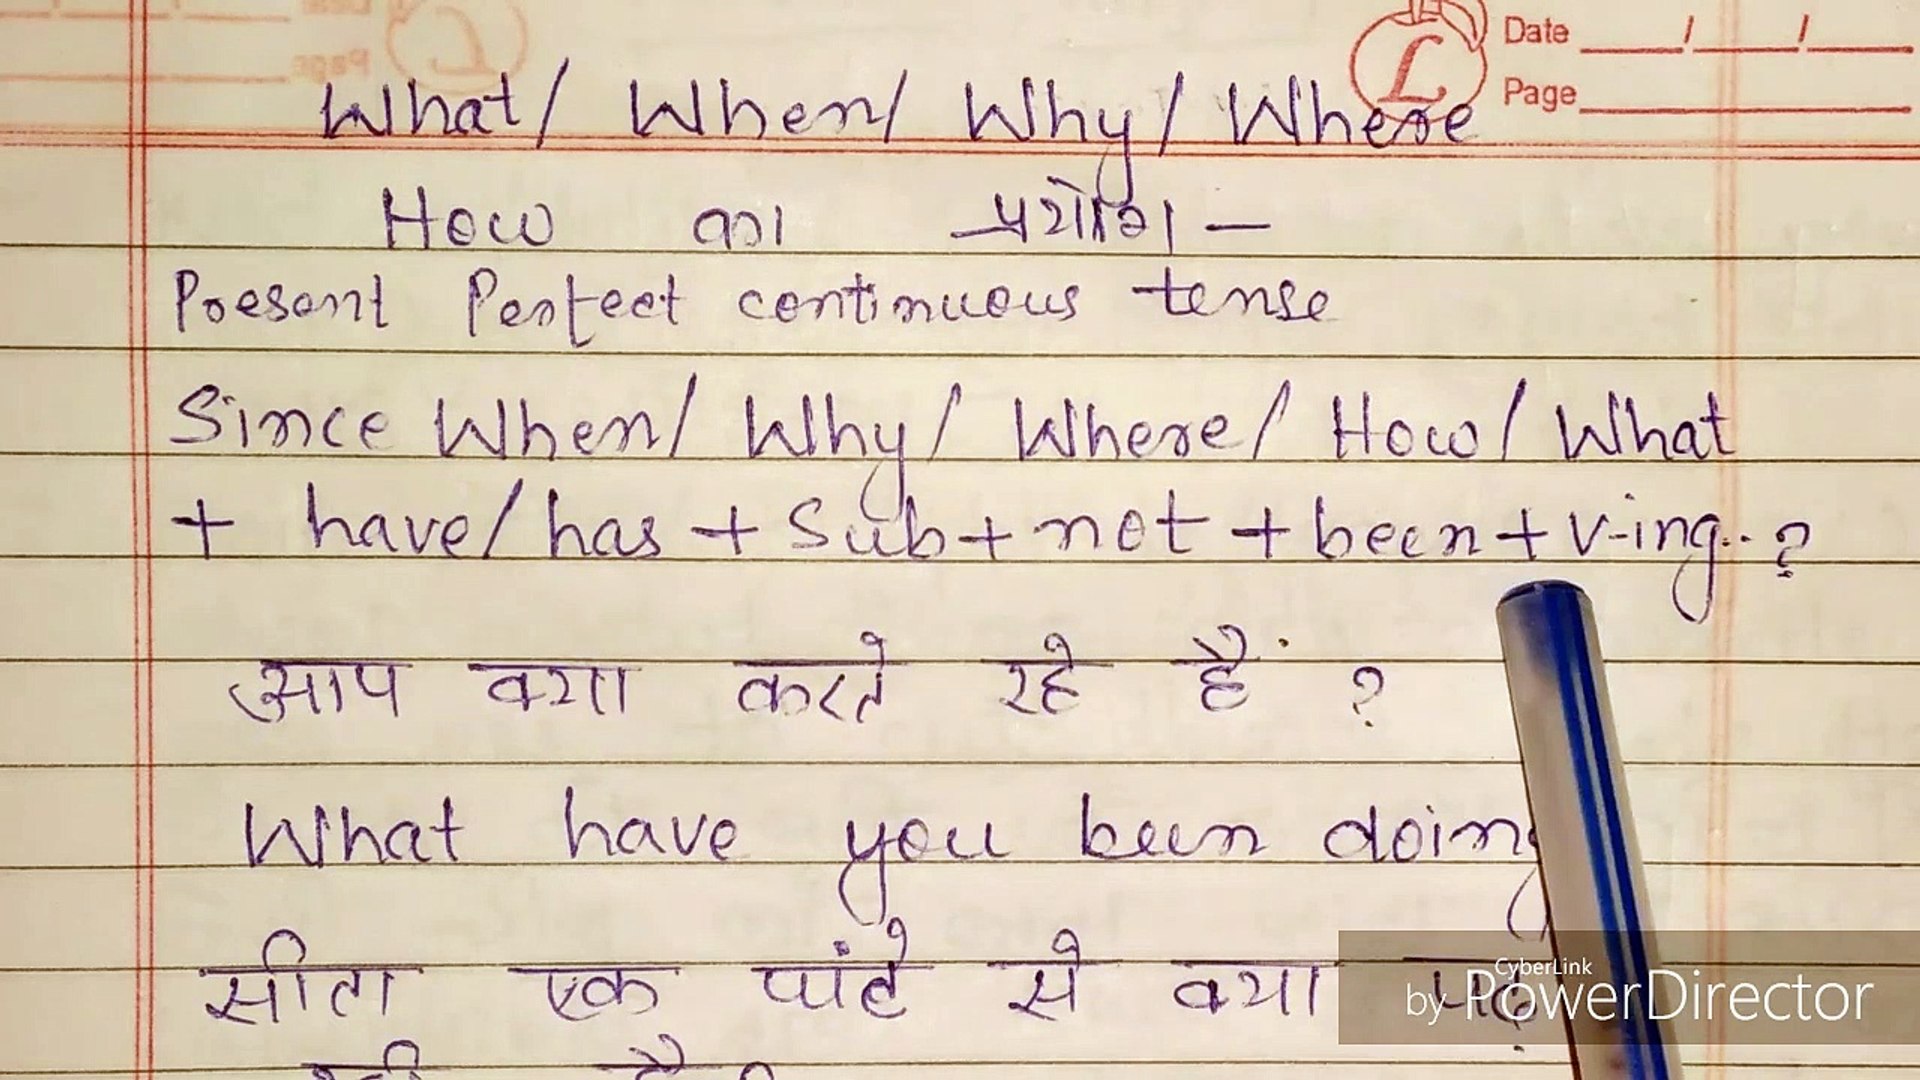 Date / /
Page
What / When / Why / Where
How का प्रयोग —
Present Perfect continuous tense
Since When / Why / Where / How / What
+ have / has + Sub + not + been + v-ing.. ?
आप क्या करते रहे हैं ?
What have you been doing
सीता एक घंटे से क्या पढ़
CyberLink
by PowerDirector